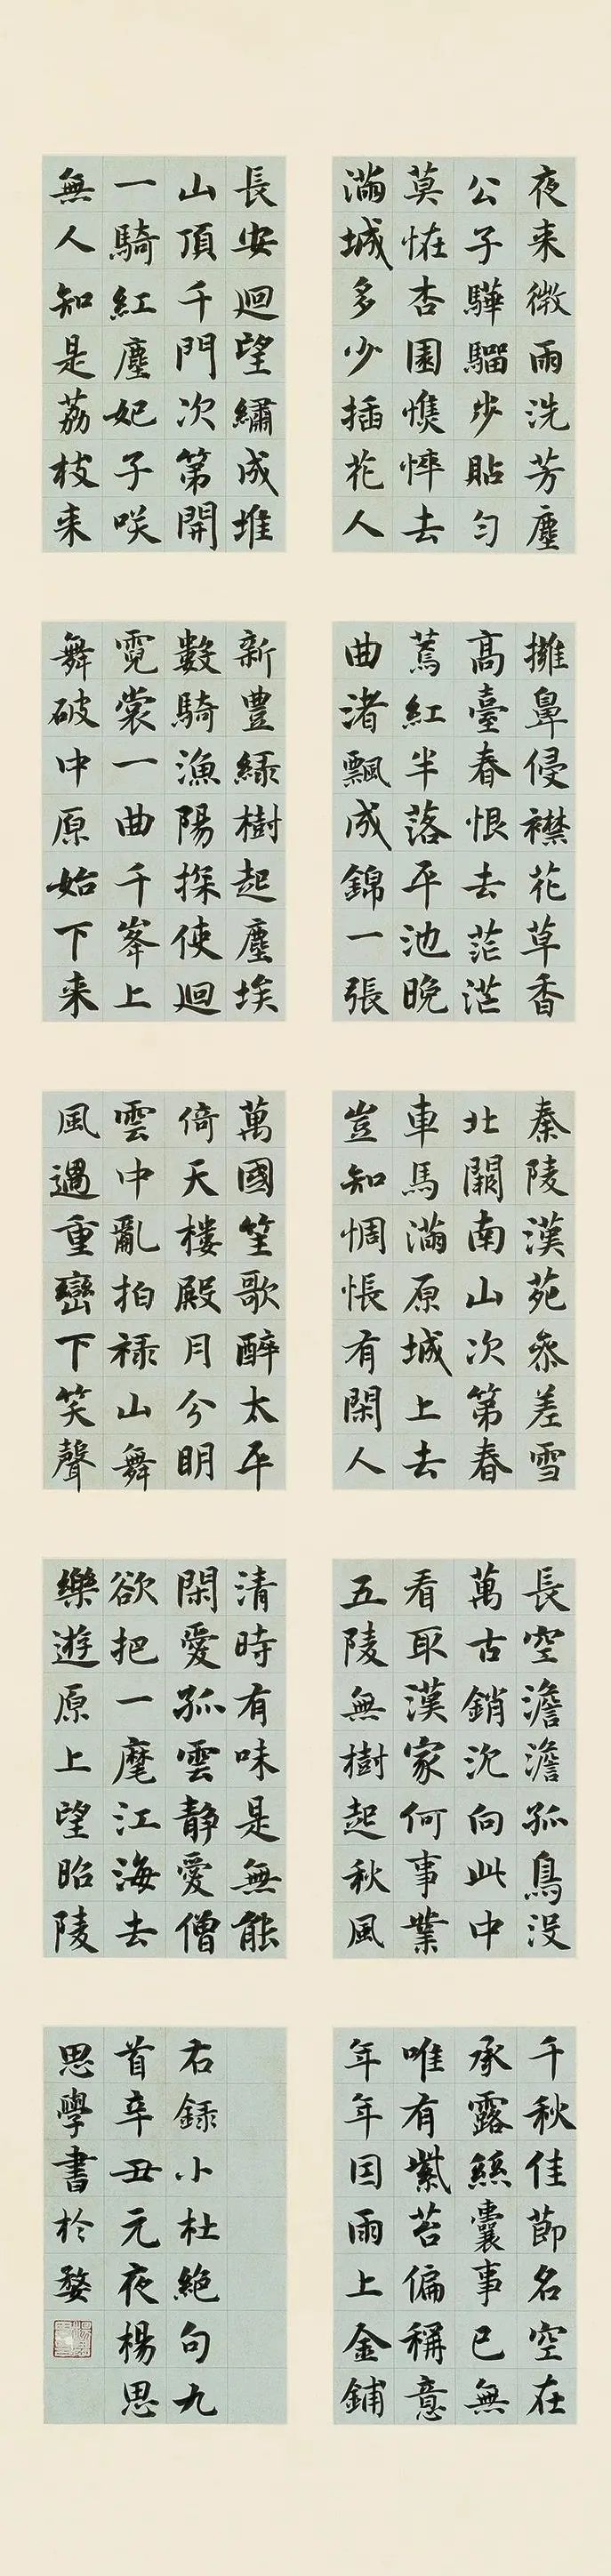 夜来微雨洗芳塵
公子驊騮步貼勻
莫恠杏園憔悴去
滿城多少插花人
擁鼻侵襟花草香
高臺春恨去茫茫
蔫紅半落平池晚
曲渚飄成錦一張
秦陵漢苑叅差雪
北闕南山次第春
車馬滿原城上去
豈知惆悵有閑人
長空澹澹孤鳥没
萬古銷沉向此中
看取漢家何事業
五陵無樹起秋風
千秋佳節名空在
承露絲囊事已無
唯有紫苔偏稱意
年年因雨上金鋪
長安迴望繡成堆
山頂千門次第開
一騎紅塵妃子咲
無人知是荔枝来
新豐綠樹起塵埃
數騎漁陽探使迴
霓裳一曲千峯上
舞破中原始下来
萬國笙歌醉太平
倚天樓殿月分明
雲中亂拍祿山舞
風過重巒下笑聲
清時有味是無能
閑愛孤雲靜愛僧
欲把一麾江海去
樂遊原上望昭陵
右録小杜絕句九
首辛丑元夜楊思
思學書於婺